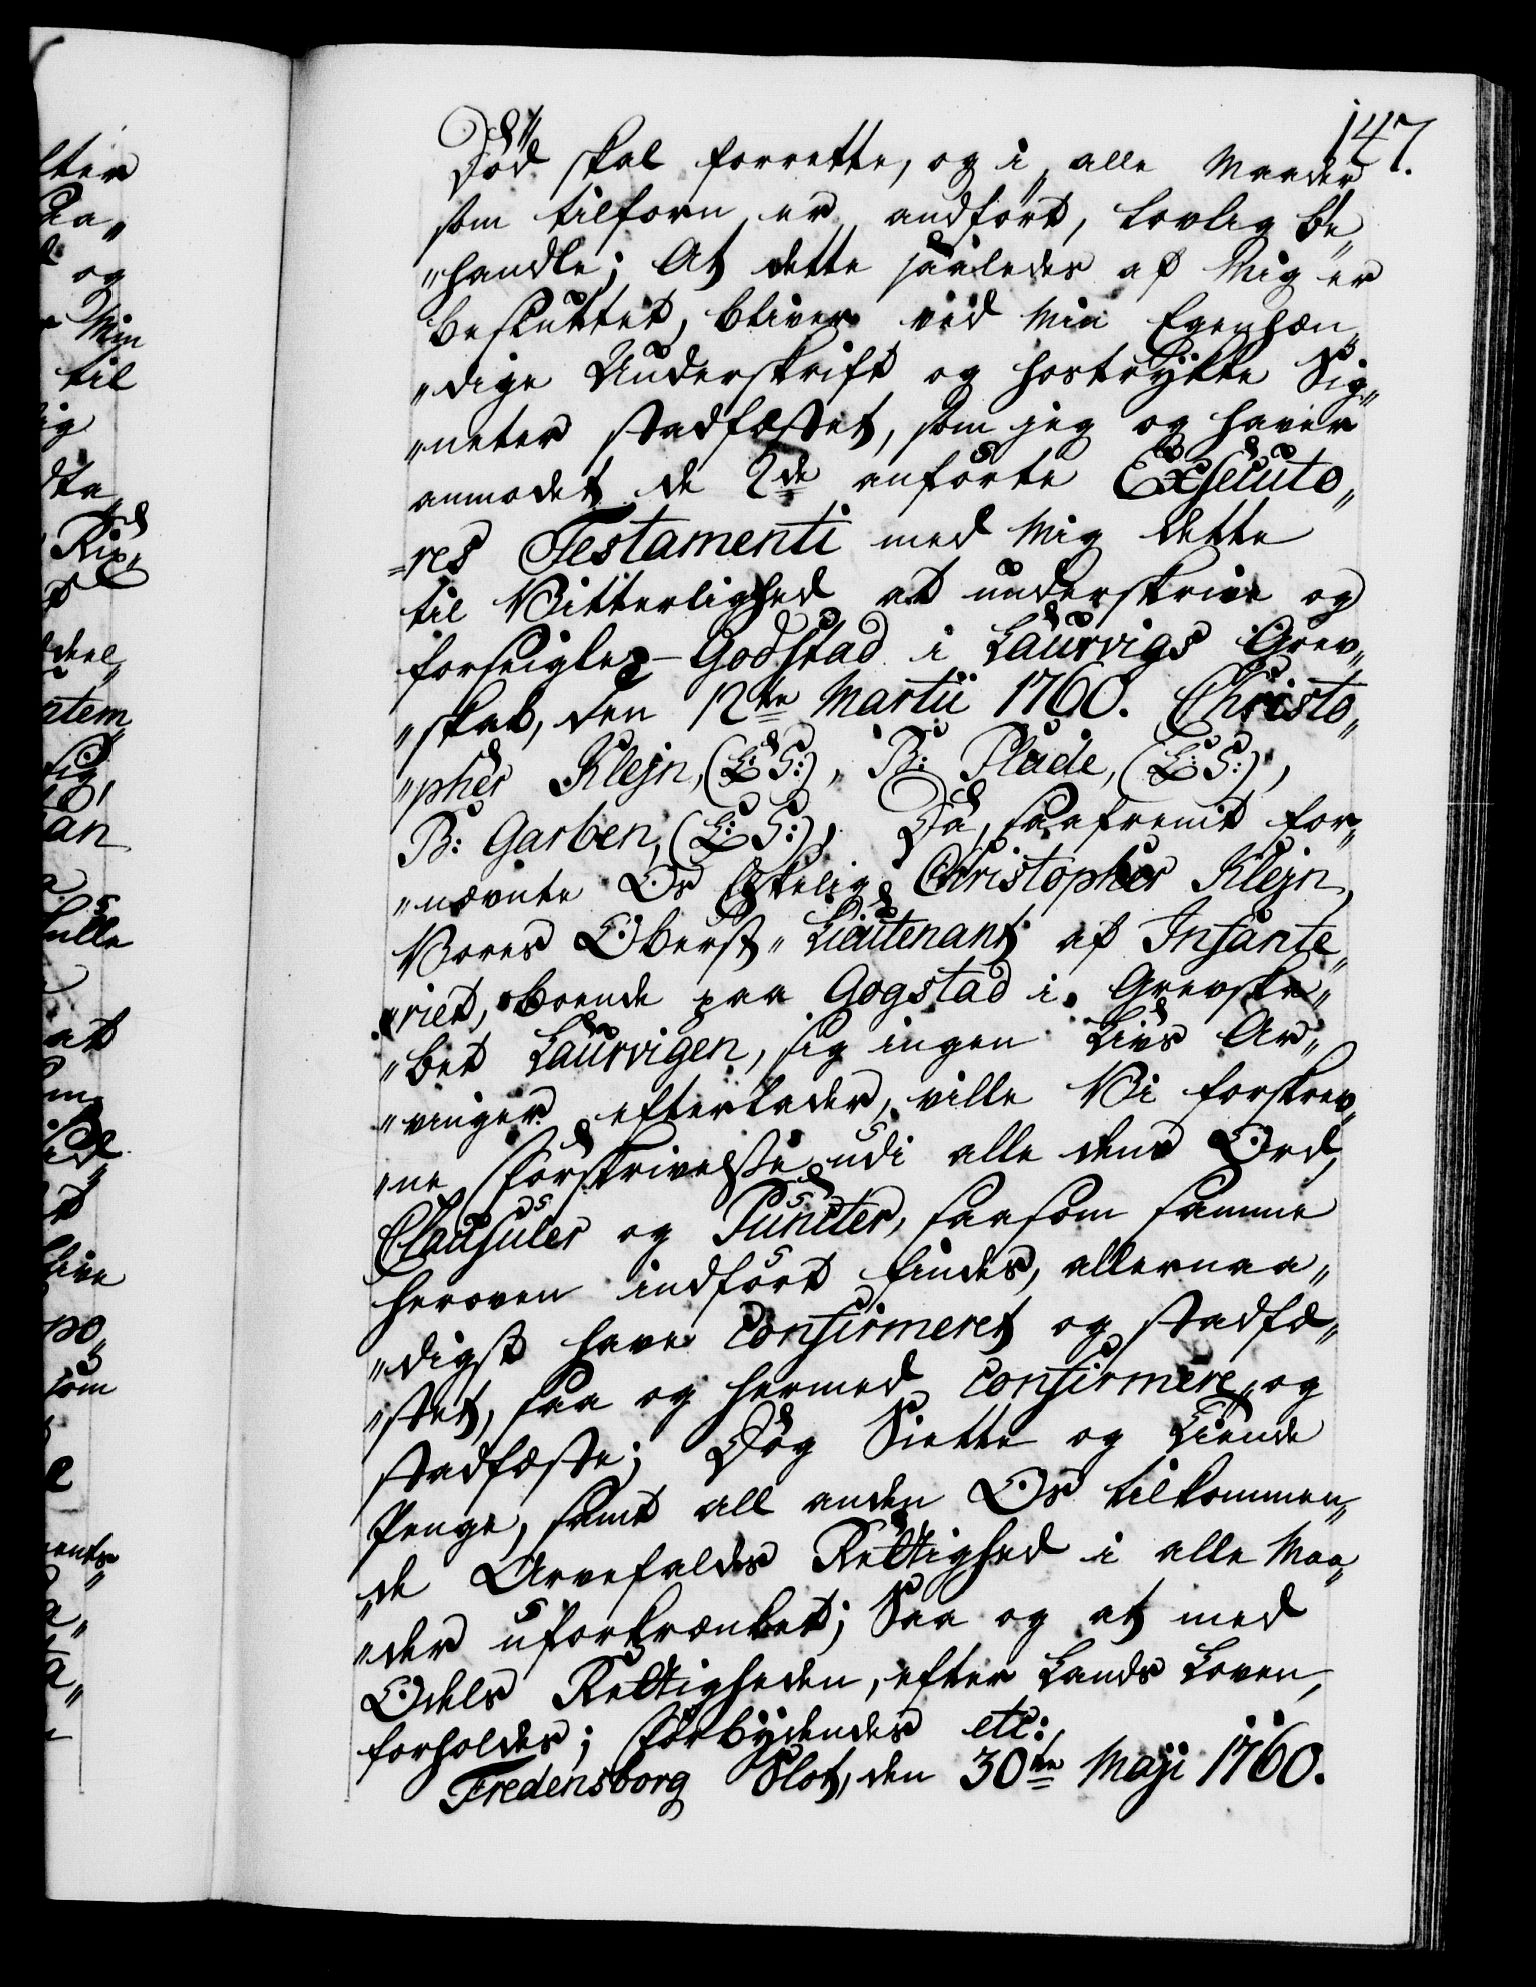 147.
Död skal forrette, og i alle Maader
som tilforn er andfört, lovlig be„
„handle; At dette saaledes af Mig er
besluttet, bliver ved Min Egenhæn„
„dige Underskrift og hostrÿkte Sig„
„neter stadfæstet, som jeg og haver
anmodet de 2de anförte Exsecuto„
=res Testamenti med Mig dette
til Vitterlighed at underskrive og
forseigle - Godstad i Laurvigs Grev„
„skab, den 12te Martii 1760. Christo„
„pher Klejn, (L: S:), B: Plade, (L: S:),
B: Garben, (L: S:), Da, saafremt for„
„nævnte Os Elskelig Christopher Klejn,
Vores Oberst-Lieutenant af Infante„
„riet, boende paa Gogstad i Grevska„
„bet Laurvigen, sig ingen Livs Ar„
„vinger efterlader, ville Vi forskrev„
„ne Forskrivelse udi alle dens Ord,
Clausuler og Puncter, saasom samme
heroven indfört findes, allernaa„
„digst have confirmeret og stadfæ„
„stet, saa og hermed confirmere og
stadfæste; Dog Siette og Tiende
Penge, samt all anden Os tilkommen„
„de Arvefalds Rettighed i alle Maa„
„der uforkrænket; Saa og at med
Odels Rettigheden, efter Lands Loven,
forholdes; Forbÿdendes etc:
Fredensborg Slot, den 30te Maji 1760.